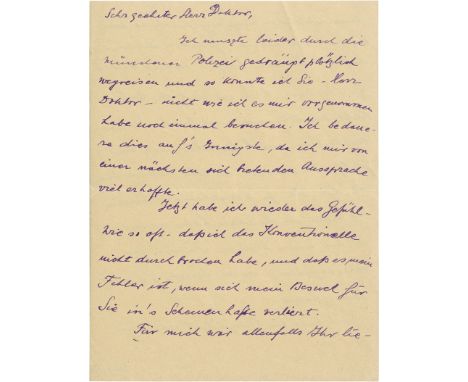 Sehr geehrter Herr Doktor,
Ich musste leider durch die
münchner Polizei gedrängt plötzlich
wegreisen und so konnte ich Sie – Herr
Doktor – nicht wie ich es mir vorgenommen
habe noch einmal besuchen. Ich bedaue-
re dies auf's Innigste, da ich mir von
einer nächsten sich bietenden Aussprache
viel erhoffte.
Jetzt habe ich wieder das Gefühl –
wie so oft – daß ich das Konventionelle
nicht durchbrochen habe, und daß es mein
Fehler ist, wenn sich mein Besuch für
Sie in's Schemenhafte verliert.
Für mich war allenfalls Ihr lie-